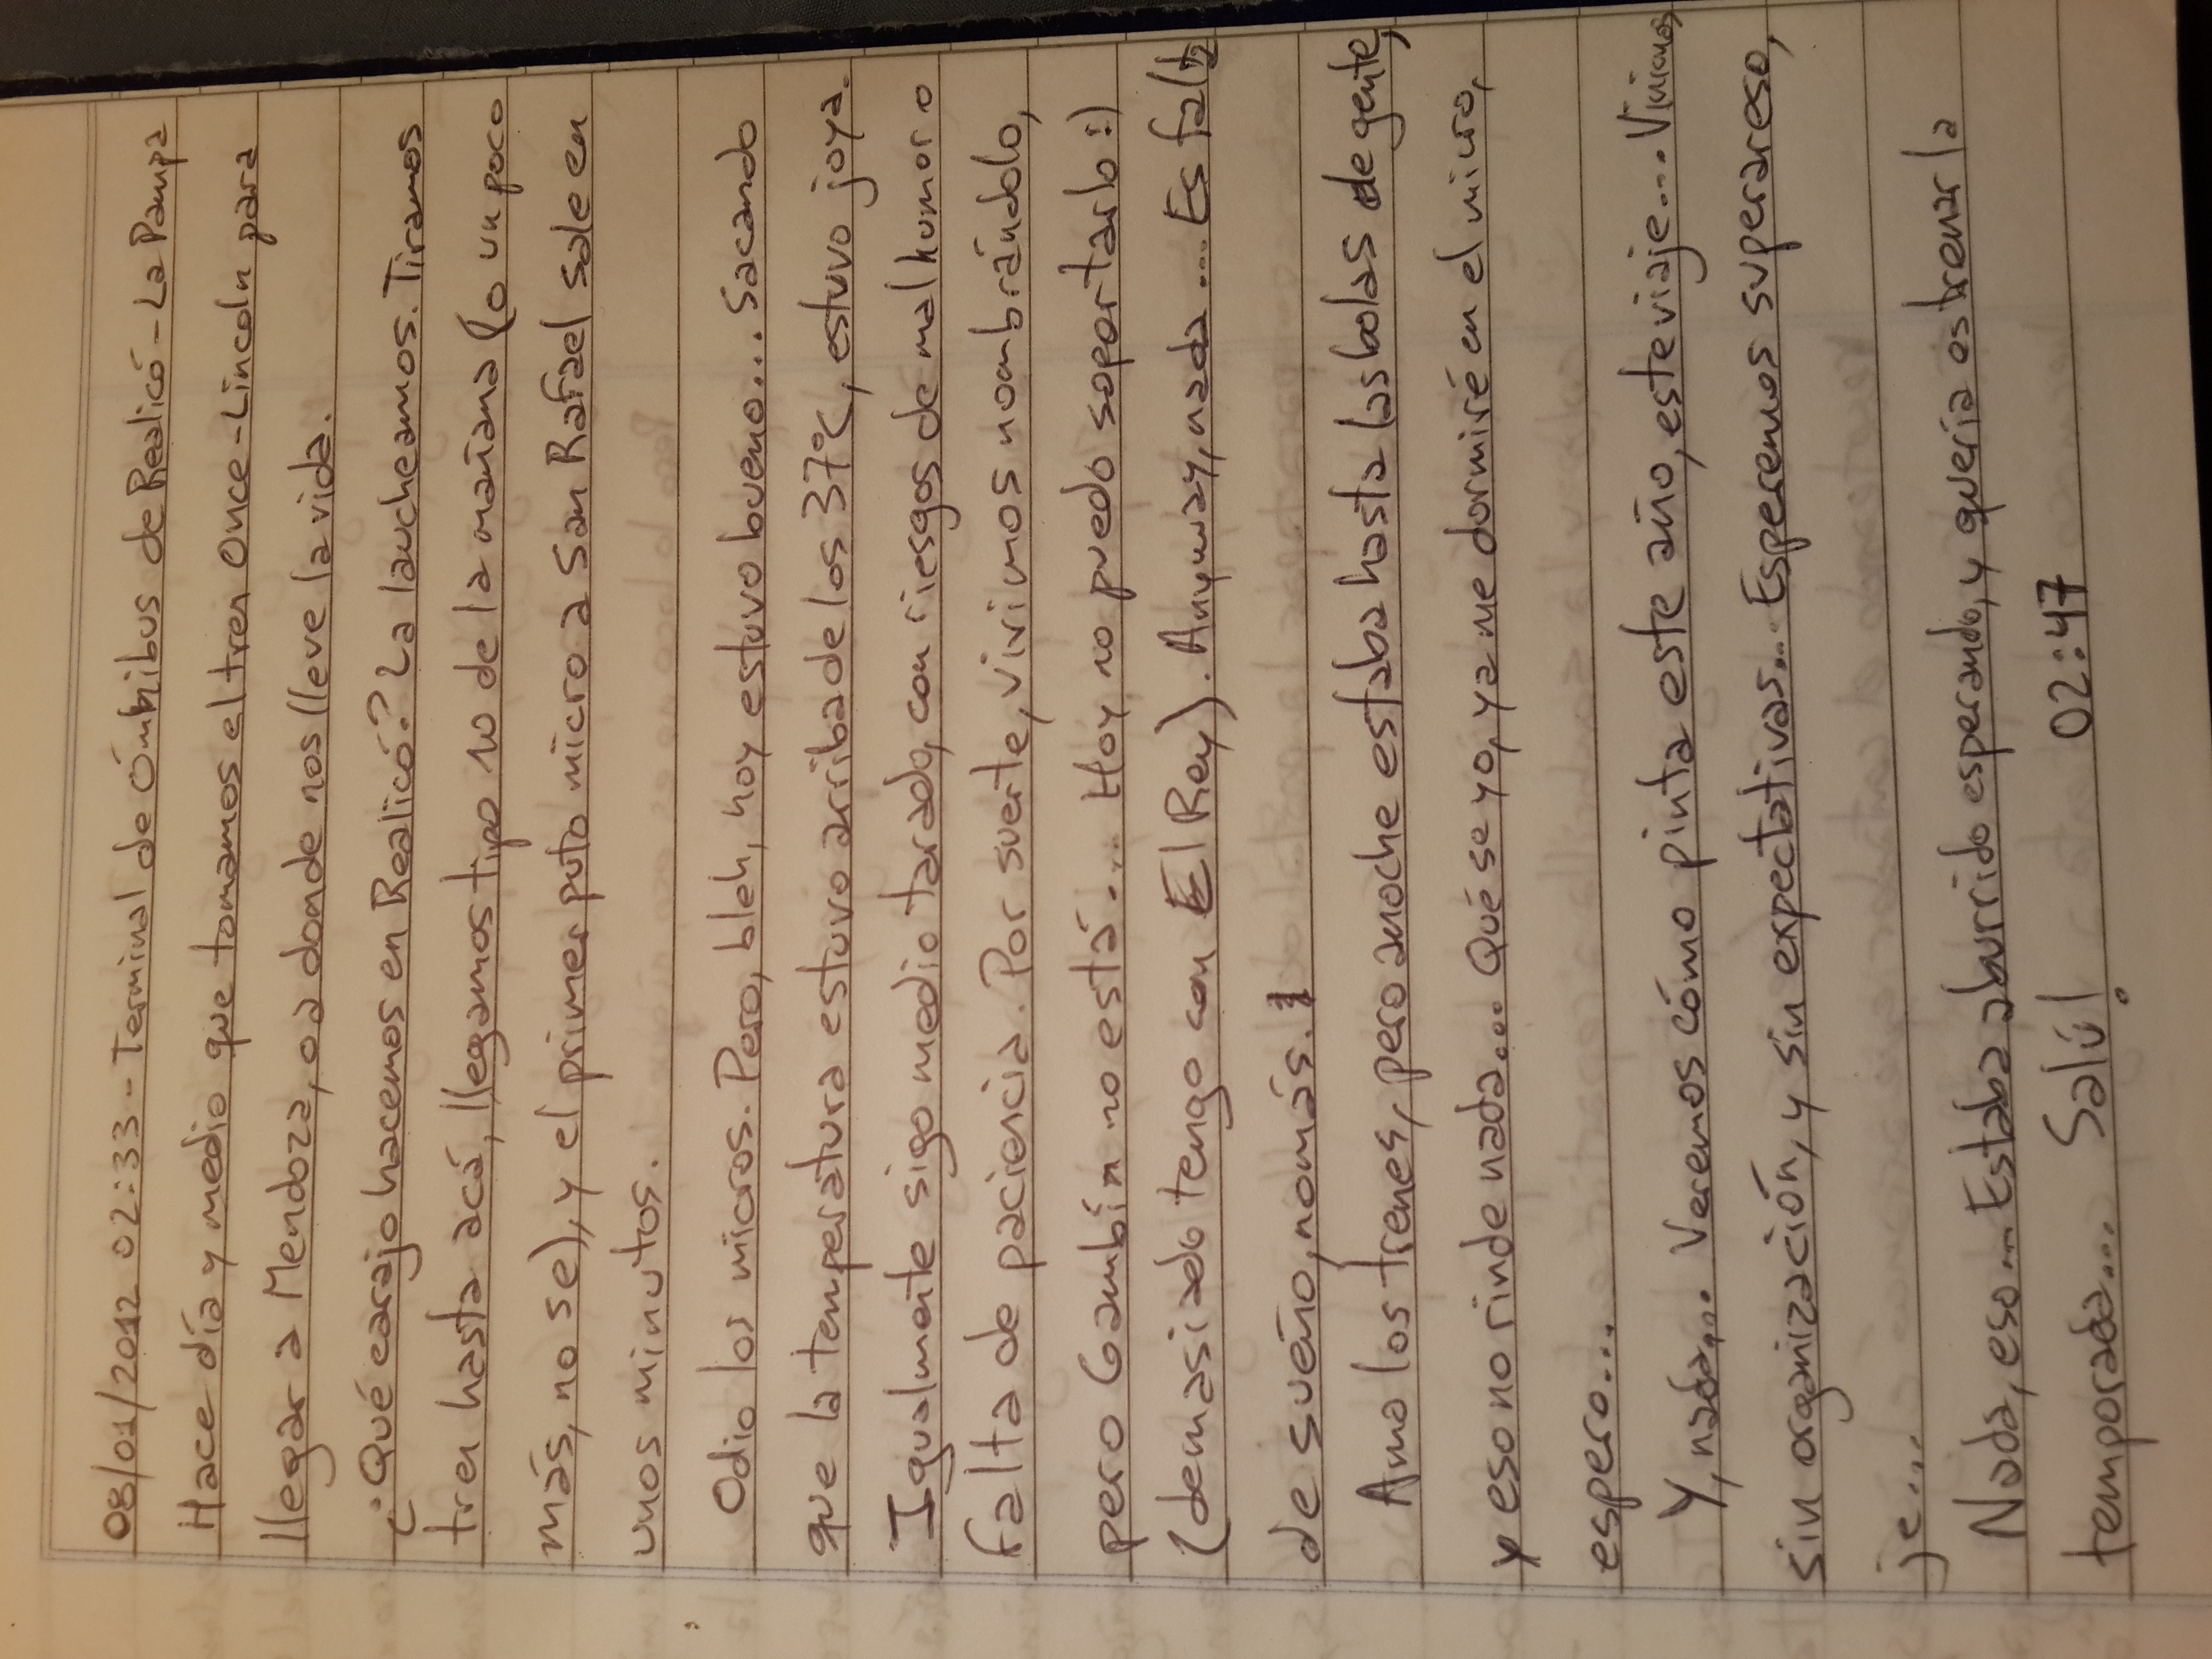 08/01/2012 02:33 - Terminal de Ómnibus de Realicó - La Pampa
Hace día y medio que tomamos el tren Once-Lincoln para
llegar a Mendoza, o a donde nos lleve la vida.
¿Qué carajo hacemos en Realicó? La laucheamos. Tiramos
tren hasta acá, llegamos tipo 10 de la mañana (o un poco
más, no se), y el primer puto micro a San Rafael sale en
unos minutos.
Odio los micros. Pero, bleh, hoy estuvo bueno... Sacando
que la temperatura estuvo arriba de los 37°C, estuvo joya.
Igualmente sigo medio tarado, con riesgos de mal humor o
falta de paciencia. Por suerte, vivimos nombrándolo,
pero Gambín no está... Hoy no puedo soportarlo :)
(demasiado tengo con El Rey). Anyway, nada... Es falta
de sueño, nomás.
Amo los trenes, pero anoche estaba hasta las bolas de gente,
y eso no rinde nada... Qué se yo, ya me dormiré en el micro,
espero...
Y, nada... Veremos cómo pinta este año, este viaje... Vinimos
sin organización, y sin expectativas... Esperemos superar eso,
je...
Nada, eso... Estaba aburrido esperando, y quería estrenar la
temporada... Salú! 02:47